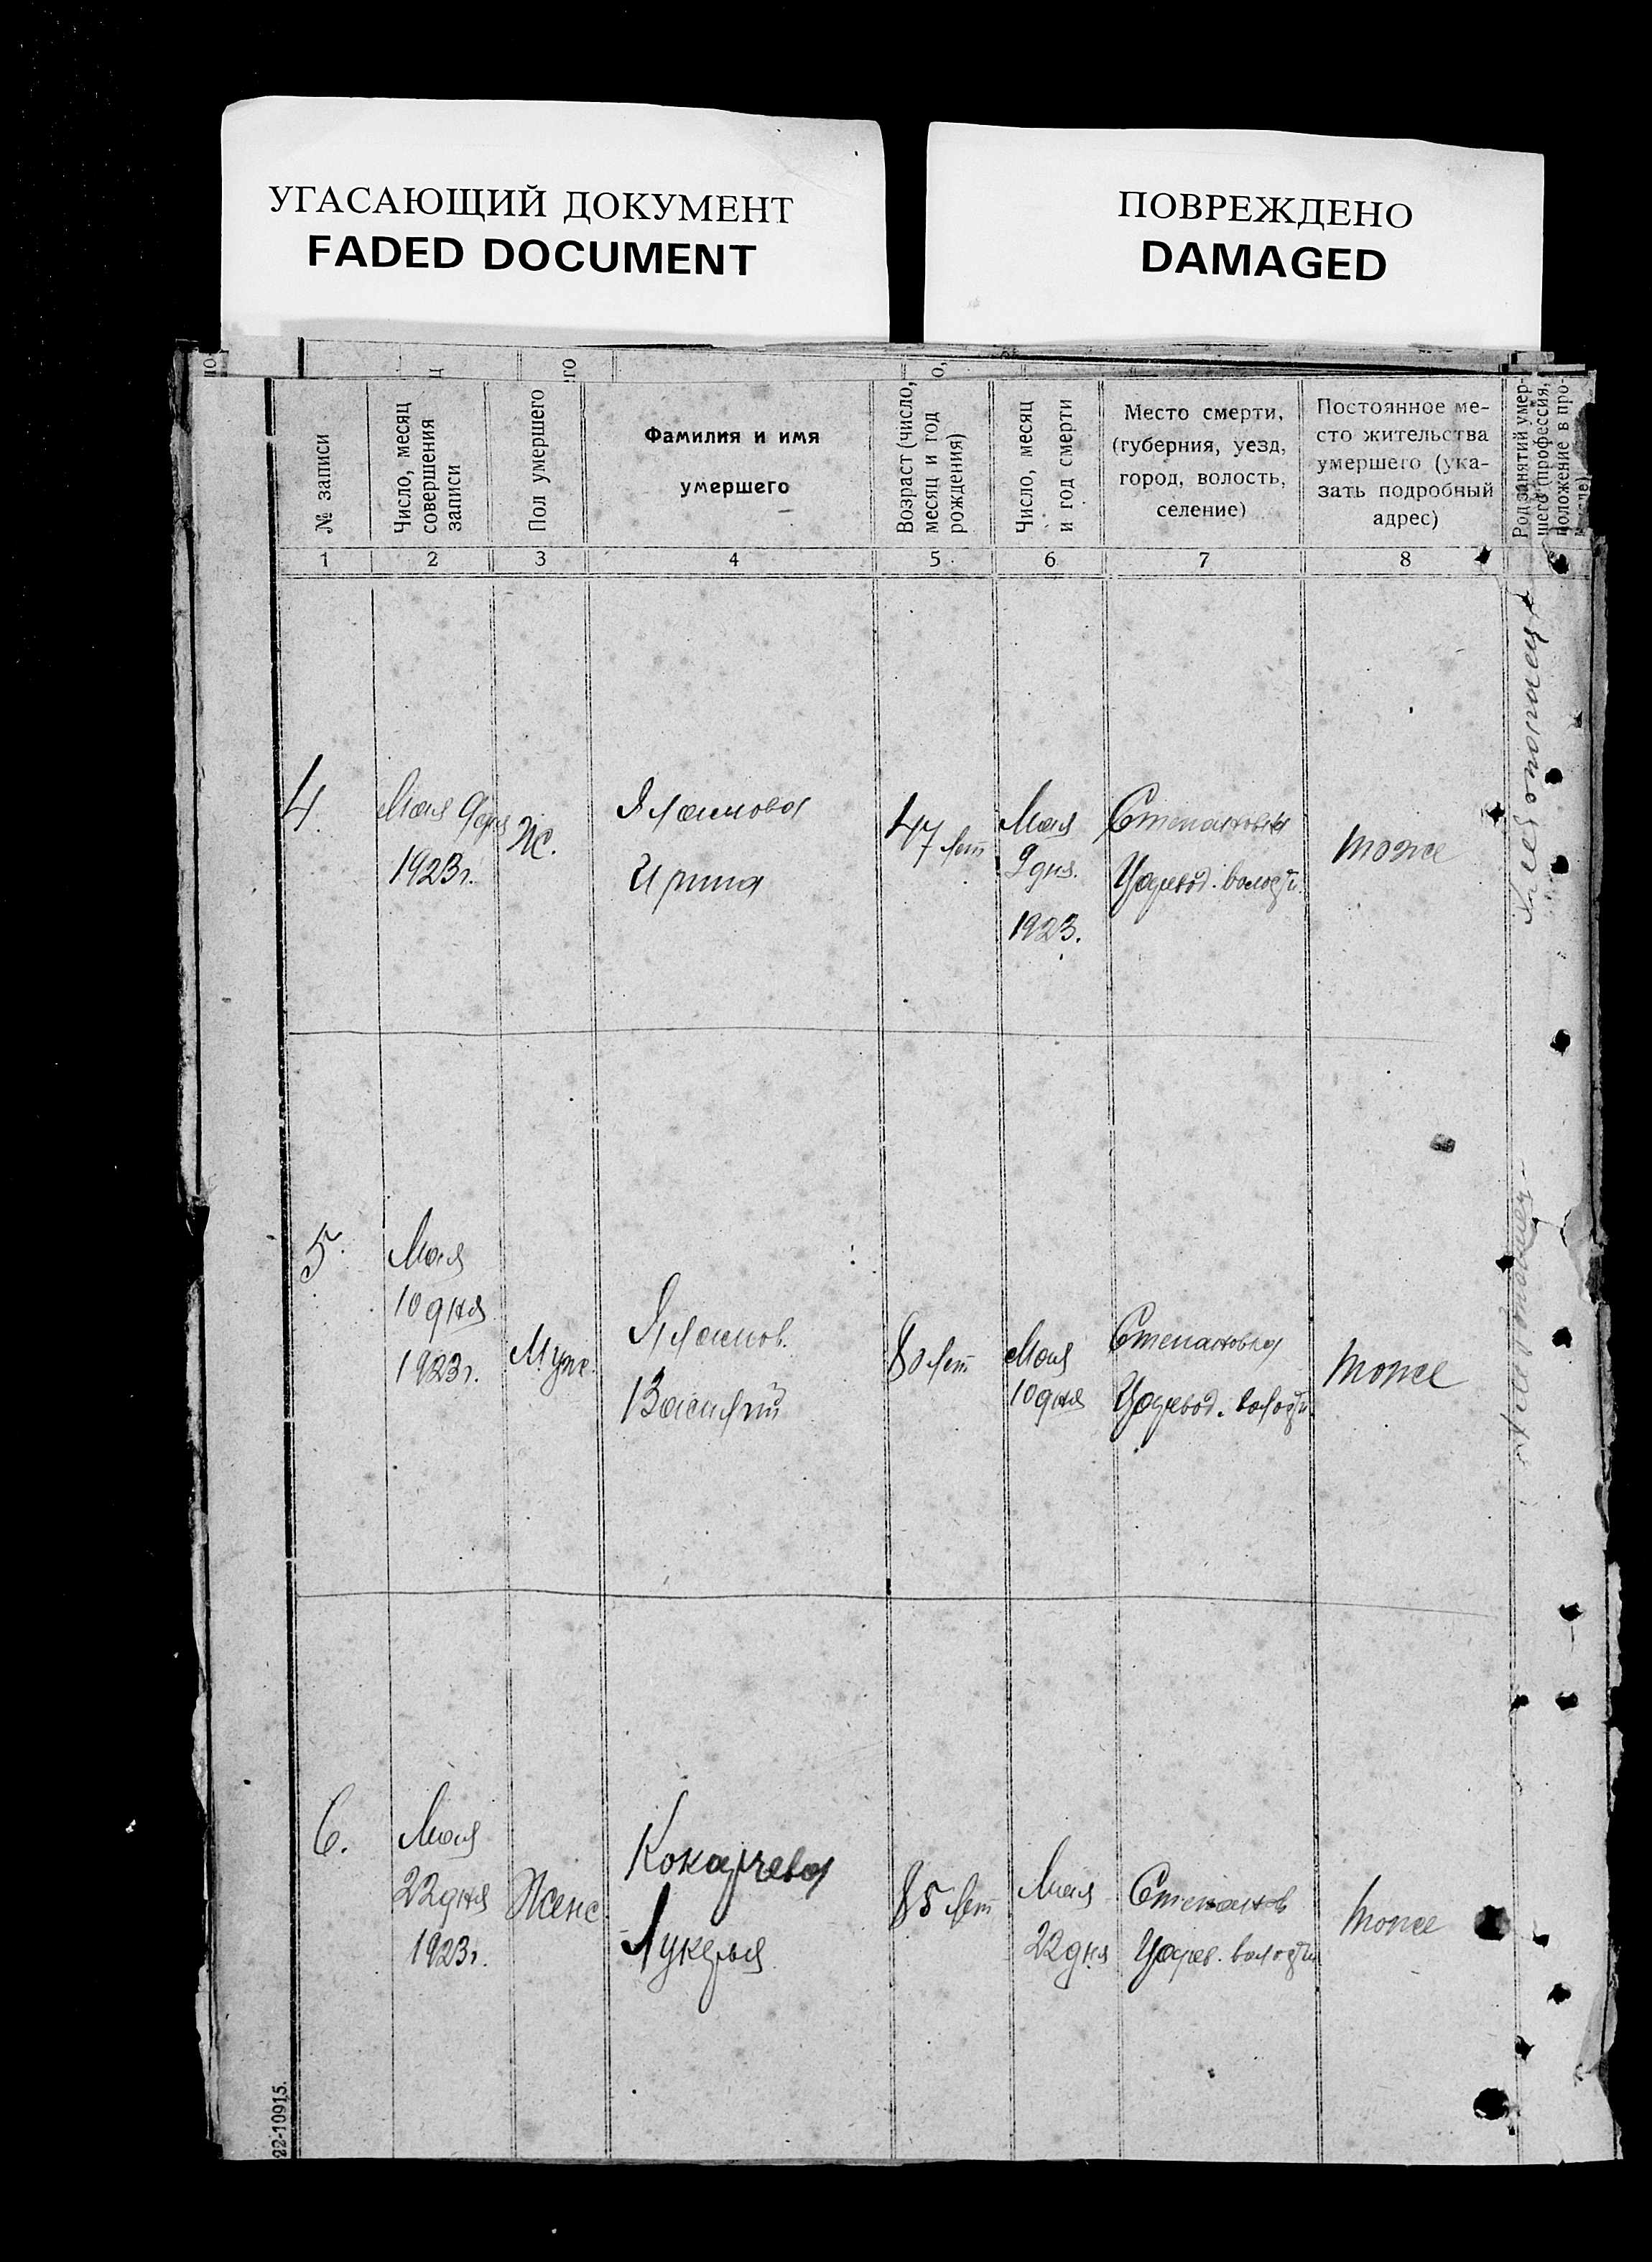 УГАСАЮЩИЙ ДОКУМЕНТ
FADED DOCUMENT
ПОВРЕЖДЕНО
DAMAGED
№ записи
Число, месяц
совершения
записи
Пол умершего
Фамилия и имя
умершего
Возраст (число,
месяц и год
рождения)
Число, месяц
и год смерти
Место смерти,
(губерния, уезд,
город, волость,
селение)
Постоянное ме-
сто жительства
умершего (ука-
зать подробный
адрес)
Род занятий умер-
шего (профессия,
положение в про-
1
2
3
4
5
6
7
8
4.
Мая 9 дня
1923 г.
Ж.
Ирина
47 лет
Мая
9 дня.
1923.
Степановка
Царевод. волости.
тоже
5.
Мая
10 дня
1923 г.
Муж.
Василий
80 лет
Мая
10 дня
Степановка
Царевод. волости.
тоже
6.
Мая
22 дня
1923 г.
Женс.
Лукерья
85 лет
Мая
22 дня
Степанов
Царев. волости
тоже
22-10915.